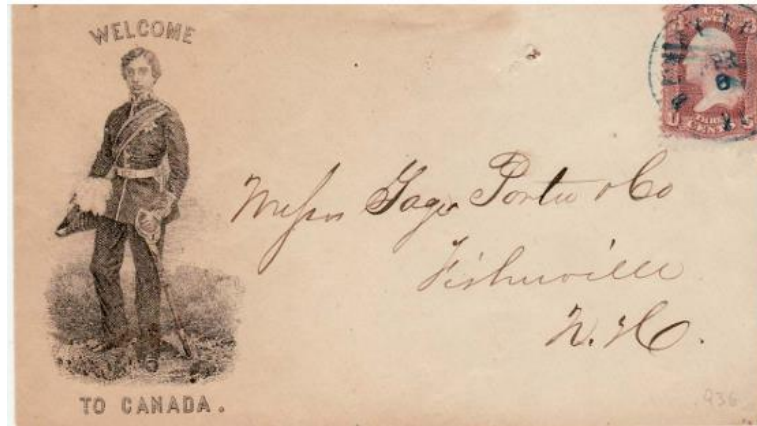 WELCOME
TO CANADA.
Messrs Gage Porter & Co
Fisherville
N. H.
U S
THREE
CENTS
936